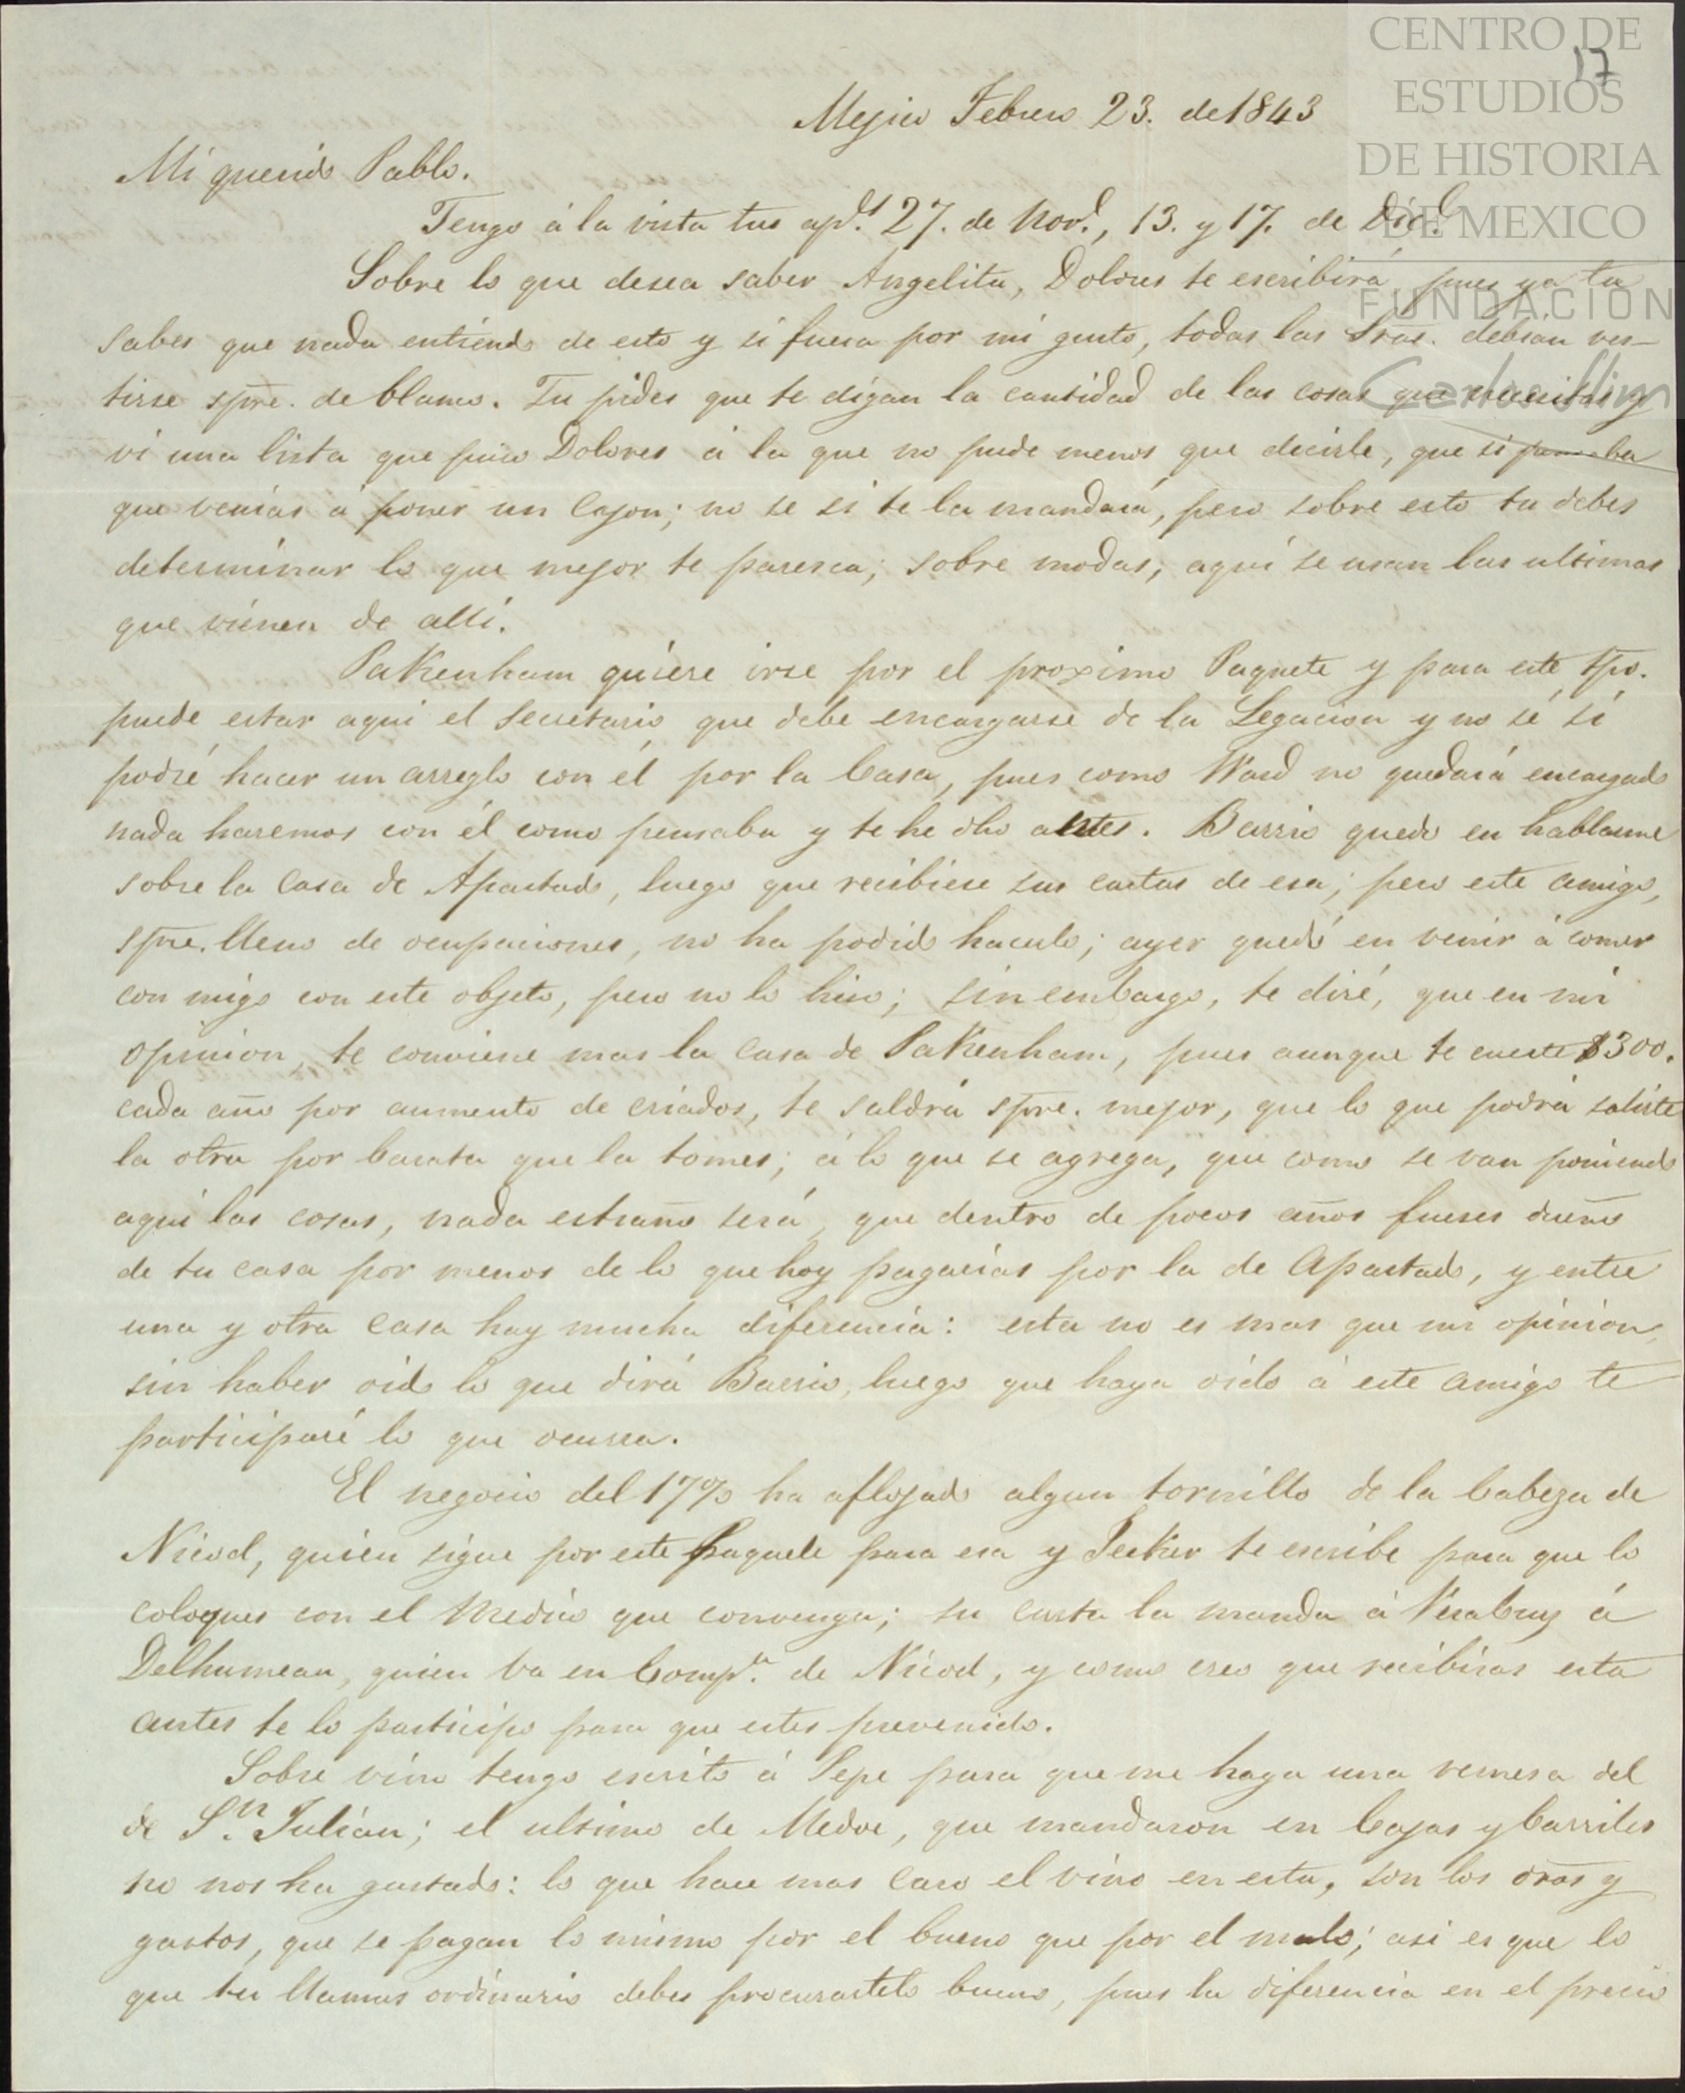 CENTRO DE
ESTUDIOS
DE HISTORIA
DE MEXICO
FUNDACIÓN
Carlos Slim
17
Mejico Febrero 23. de 1843
Mi querido Pablo.
Tengo á la vista tus ap.das 27. de Nov.e, 13. y 17. de Dic.e
Sobre lo que desea saber Angelita, Dolores te escribirá pues ya tu
sabes que nada entiendo de esto y si fuera por mi gusto, todas las Sras. debian ves-
tirse spre. de blanco. Tu pides que te digan la cantidad de las cosas que necesitas y
vi una lista que puso Dolores á la que no pude menos que decirle, que si pensaba
que venias á poner un Cajon; no se si te la mandará, pero sobre esto tu debes
determinar lo que mejor te paresca; sobre modas, aqui se usan las ultimas
que vienen de allí.
Pakenham quiere irse por el proximo Paquete y para este tpo.
puede estar aqui el Secretario que debe encargarse de la Legacion y no sé si
podré hacer un arreglo con él por la Casa, pues como Ward no quedará encargado
nada haremos con él como pensaba y te he dho antes. Barrio quedo en hablarme
sobre la Casa de Apartado, luego que recibiese sus cartas de esa; pero este amigo,
spre. lleno de ocupaciones, no ha podido hacerlo; ayer quedó en venir á comer
con migo con este objeto, pero no lo hiso; sin embargo, te diré, que en mi
opinion, te conviene mas la casa de Pakenham, pues aunque te cueste $300.
cada año por aumento de criados, te saldrá spre. mejor, que lo que podrá salirte
la otra por barata que la tomes; á lo que se agrega, que como se van poniendo
aqui las cosas, nada estraño será, que dentro de pocos años fueses dueño
de tu casa por menos de lo que hoy pagarias por la de Apartado, y entre
una y otra Casa hay mucha diferencia: esta no es mas que mi opinion,
sin haber oido lo que dirá Barrio, luego que haya oido á este amigo te
participaré lo que ocurra.
El negocio del 17% ha aflojado algun tornillo de la Cabeza de
Nicod, quien sigue por este Paquete para esa y Jecker te escribe para que lo
coloques con el Medico que convenga; su carta la manda á VeraCruz á
Delhumeau, quien va en Comp.a de Nicod, y como creo que recibiras esta
antes te lo participo para que estes prevenido.
Sobre vino tengo escrito á Pepe para que me haga una remesa del
de S.n Julián; el ultimo de Medoc, que mandaron en Cajas y barriles
no nos ha gustado: lo que hace mas caro el vino en esta, son los dros y
gastos, que se pagan lo mismo por el bueno que por el malo; asi es que lo
que tu llamas ordinario debes procurartelo bueno, pues la diferencia en el precio